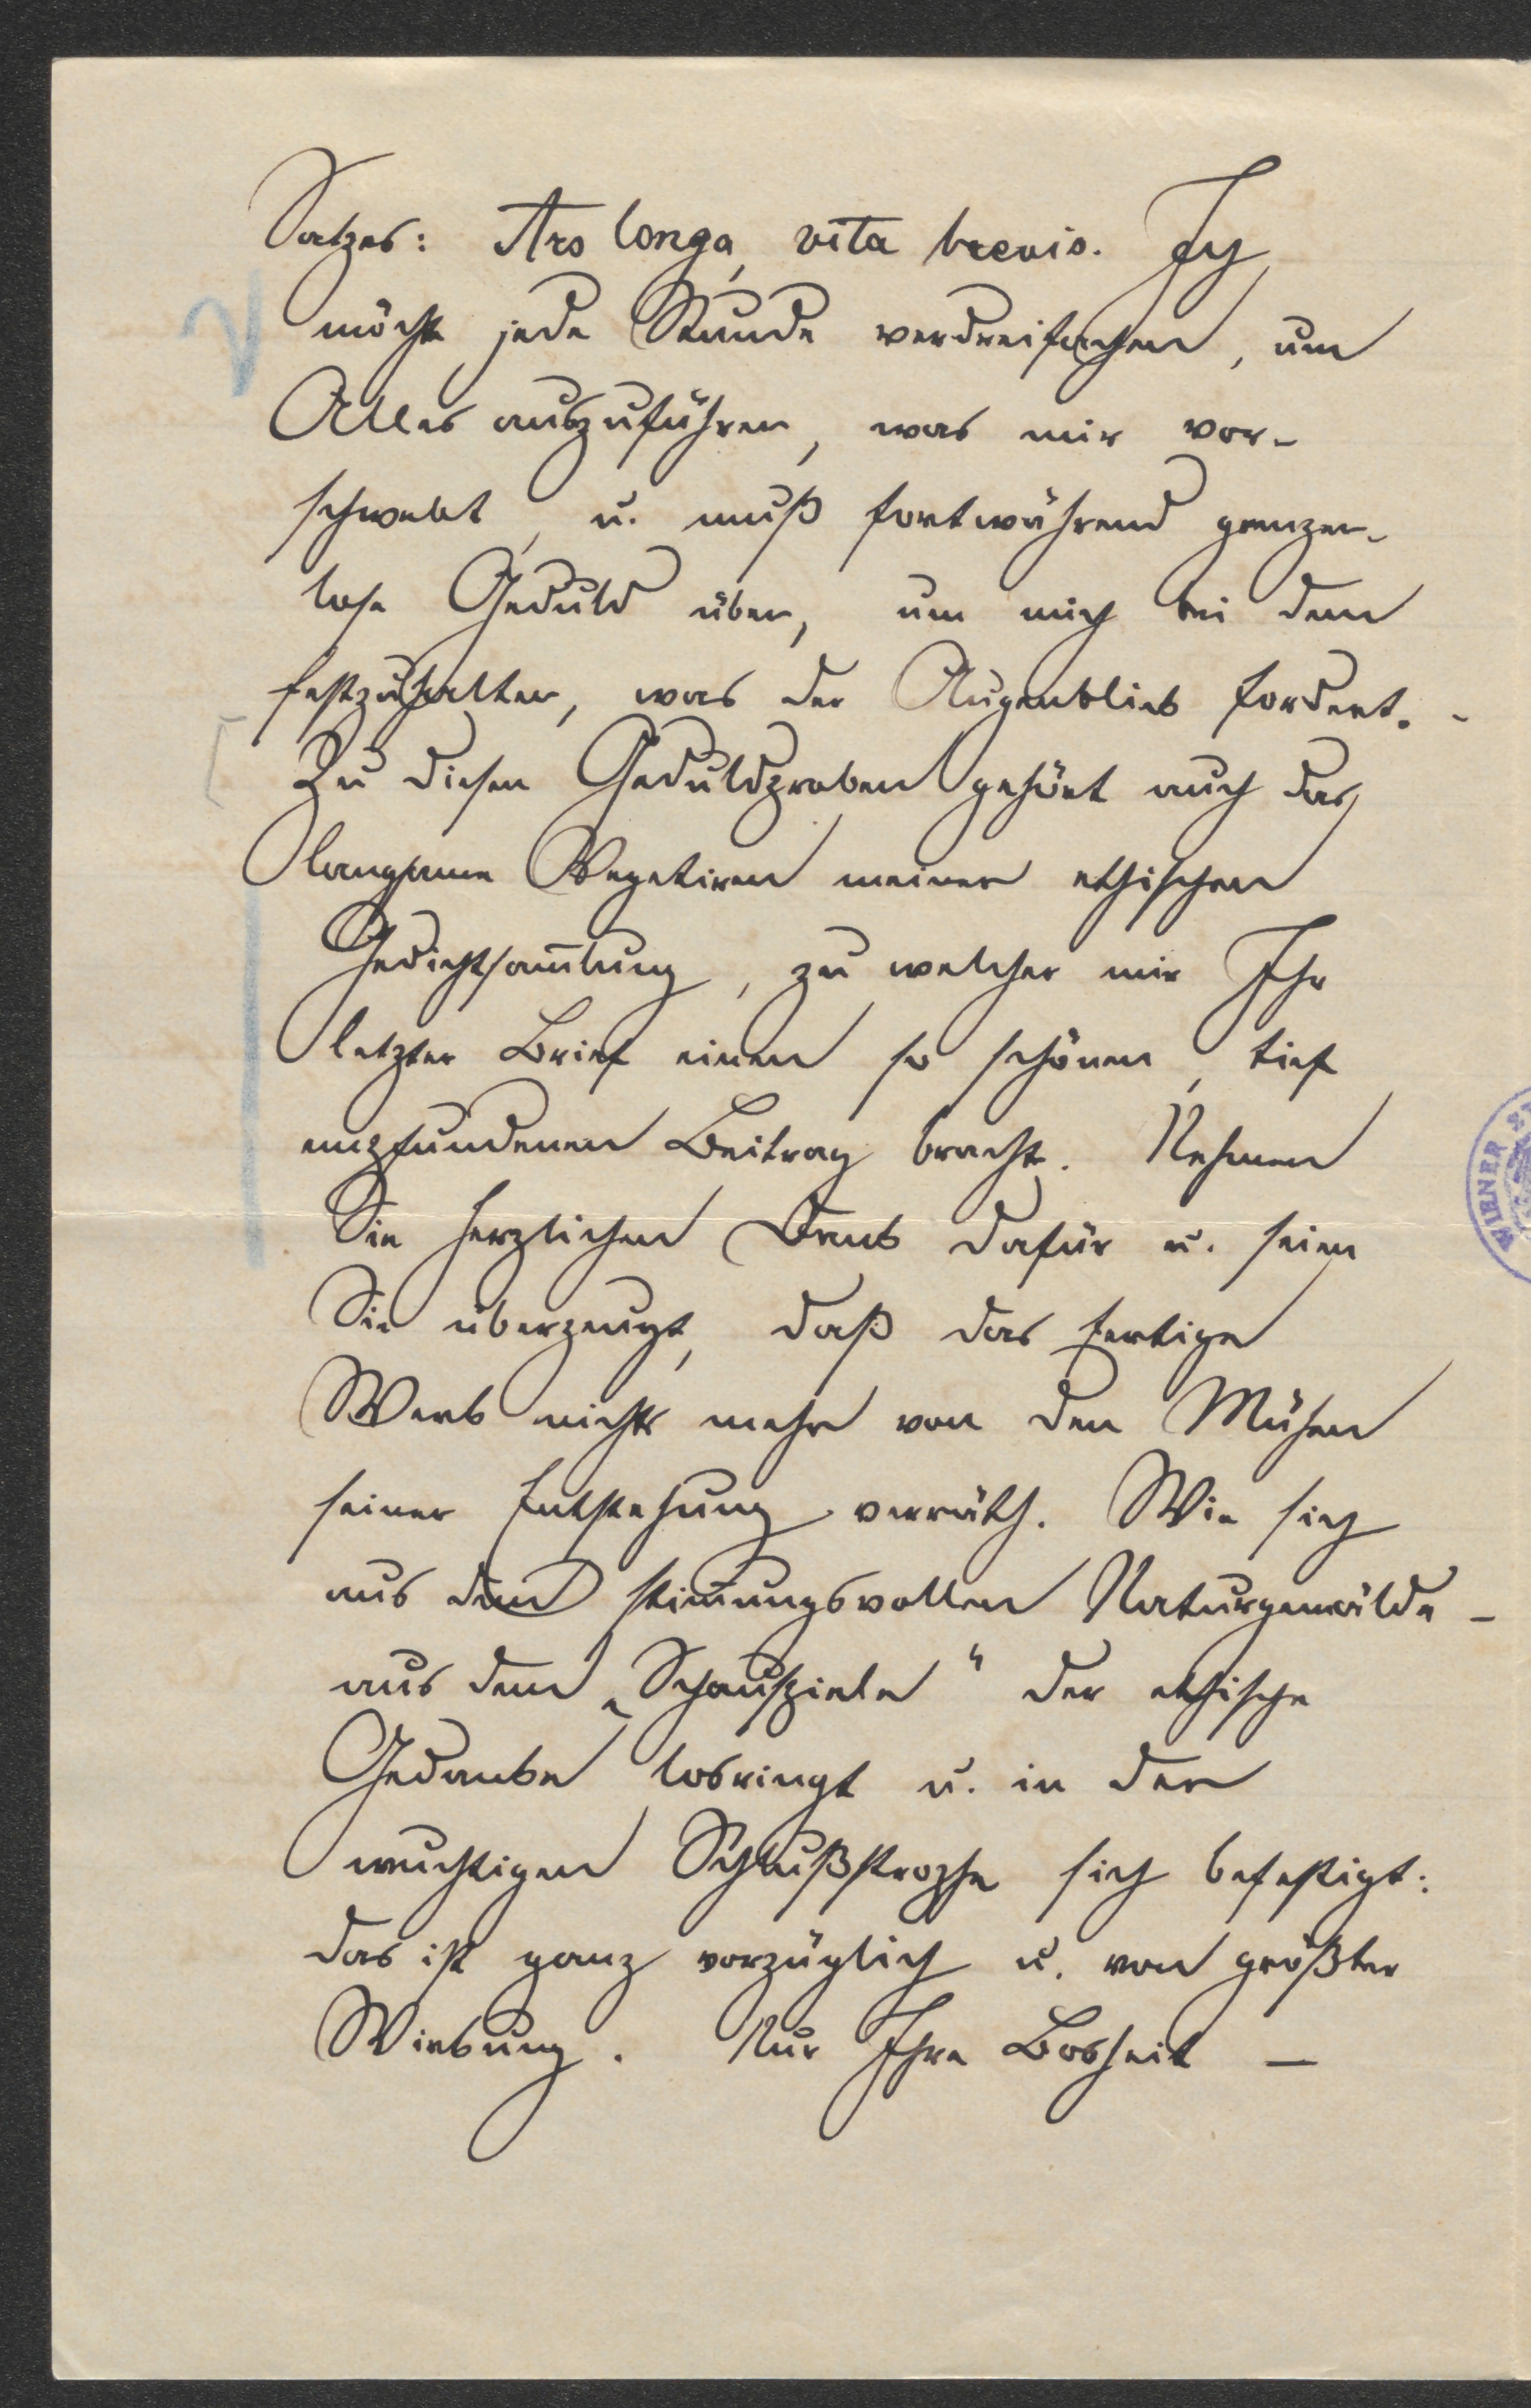 Satzes: Ars longa, vita brevis. Ich
möchte jede Stunde verdreifachen, um
Alles auszuführen, was mir vor-
schwebt, u. muß fortwährend grenzen-
lose Geduld üben, um mich bei dem
festzuhalten, was der Augenblick fordert. -
Zu diesen Geduldproben gehört auch das
langsame Vegetiren meiner ethischen
Gedichtsam̄lung, zu welcher mir Ihr
letzter Brief einen so schönen, tief
empfundenen Beitrag brachte. Nehmen
Sie herzlichen Dank dafür u. seien
Sie überzeugt, daß das fertige
Werk nichts mehr von den Mühen
seiner Entstehung verräth. Wie sich
aus dem stim̄ungsvollen Naturgemälde -
aus dem „Schauspiele“ der ethische
Gedanke losringt u. in der
wuchtigen Schlußstrophe sich befestigt:
das ist ganz vorzüglich u. von größter
Wirkung. Nur Ihre Bosheit —
WIENER